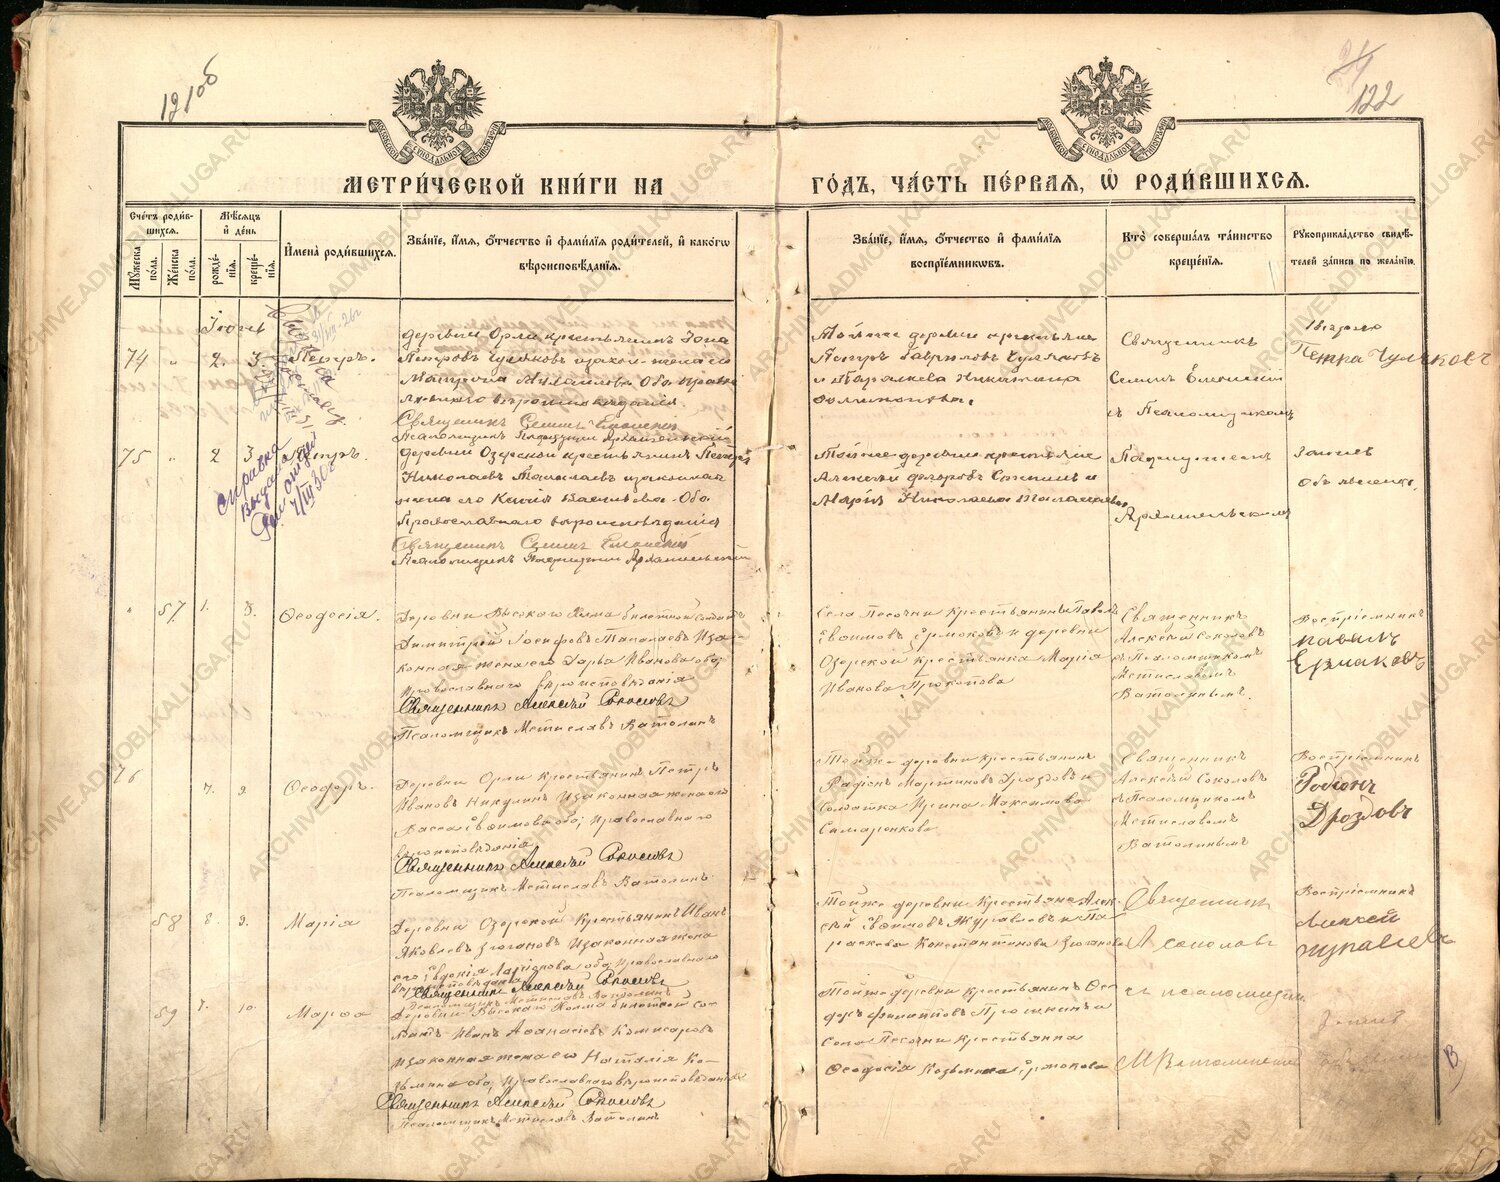 121об
122
МЕТРИ́ЧЕСКОЙ КНИ́ГИ НА
ГО́ДЪ, ЧА́СТЬ ПЕ́РВАЯ, Ѡ РОДИ́ВШИХСЯ.
Сче́тъ роди́вшихся.
Му́жеска по́ла.
Же́нска по́ла.
Мѣ́сяцъ и де́нь
рожде́нія.
креще́нія.
Имена̀ роди́вшихся.
Зва́ніе, и́мя, о́тчество и фами́лія роди́телей, и како́гѡ
вѣроисповѣ́данія.
Зва́ніе, и́мя, о́тчество и фами́лія
воспріе́мниковъ.
Кто̀ соверша́лъ та́инство
креще́нія.
Рукоприкла́дство свидѣ́-
телей за́писи по жела́нію.
Іюнь
74 " 2. 3. Петръ.
деревни Орли крестьянинъ
Петровъ Чулковъ законная жена его
Матрона Михайлова Оба право
славнаго вѣроисповѣданія
Священникъ Симеонъ
Псаломщикъ Пафнутій Архангельскій
Той же деревни крестьяне
Петръ Гавриловъ Чулковъ
и Параскева Никитина
Священникъ
Симеонъ
съ Псаломщикомъ
Петра Чулковъ
75 " 2 3 Петръ.
Справка
выдана
деревни Озерской крестьянинъ Петръ
Николаевъ законная
жена его Васильева Оба
Православнаго вѣроисповѣданія
Священникъ Симеонъ
Псаломщикъ Пафнутій Архангельскій
Той же деревни крестьяне
Алексѣй Ѳедоровъ и
Марія Николаева
Пафнутіемъ
Архангельскимъ
" 57. 1. 8. Ѳеодосія.
Деревни Высокаго Холма билетный солдатъ
Димитрій Іосифовъ Масалаевъ и за-
конная жена его Дарья Иванова оба;
Православнаго вѣроисповѣданія
Священникъ Алексѣй Соколовъ
Псаломщикъ Мстиславъ Ватолинъ
Села Песочни крестьянинъ Павелъ
Евѳимовъ Ермаковъ и деревни
Озерской крестьянка Марія
Иванова Прокопова
Священникъ
Алексѣй Соколовъ
съ Псаломщикомъ
Мстиславомъ
Ватолинымъ.
Воспріемникъ
павелъ
Ермаковъ
76 7. 9. Ѳеодоръ.
Деревни Орли крестьянинъ Петръ
Ивановъ Никулинъ и законная жена его
Васса Евѳимова оба; Православнаго
вѣроисповѣданія
Священникъ Алексѣй Соколовъ
Псаломщикъ Мстиславъ Ватолинъ.
Той же деревни крестьянинъ
Радіонъ Мартиновъ Дроздовъ и
солдатка Ирина Максимова
Симаренкова
Священникъ
Алексѣй Соколовъ
съ Псаломщикомъ
Мстиславомъ
Ватолинымъ
Воспріемникъ
Родіонъ
Дроздовъ
58 8. 9. Марія
Деревни Озерской крестьянинъ Иванъ
Яковлевъ Зюгановъ и законная жена
его Евдокія Ларіонова оба; православнаго
вѣроисповѣданія
Священникъ Алексѣй Соколовъ
Псаломщикъ Мстиславъ Ватолинъ
Той же деревни крестьяне Алек-
сѣй Евѳимовъ Журавлевъ и Па-
раскева Константинова Зюганова
Священникъ
А Соколовъ
Воспріемникъ
Алексѣй
журавлевъ
59 7. 10. Марѳа
Деревни Высокаго Холма билетный сол-
датъ Иванъ Аѳанасіевъ Комисаровъ
и законная жена его Наталія Ко-
зьмина оба; Православнаго вѣроисповѣданія
Священникъ Алексѣй Соколовъ
Псаломщикъ Мстиславъ Ватолинъ
Той же деревни крестьянинъ Ѳео-
доръ Филипповъ Прошкинъ и
села Песочни крестьянка
Ѳеодосія Козьмина Ермакова
съ псаломщик.
М Ватолинымъ